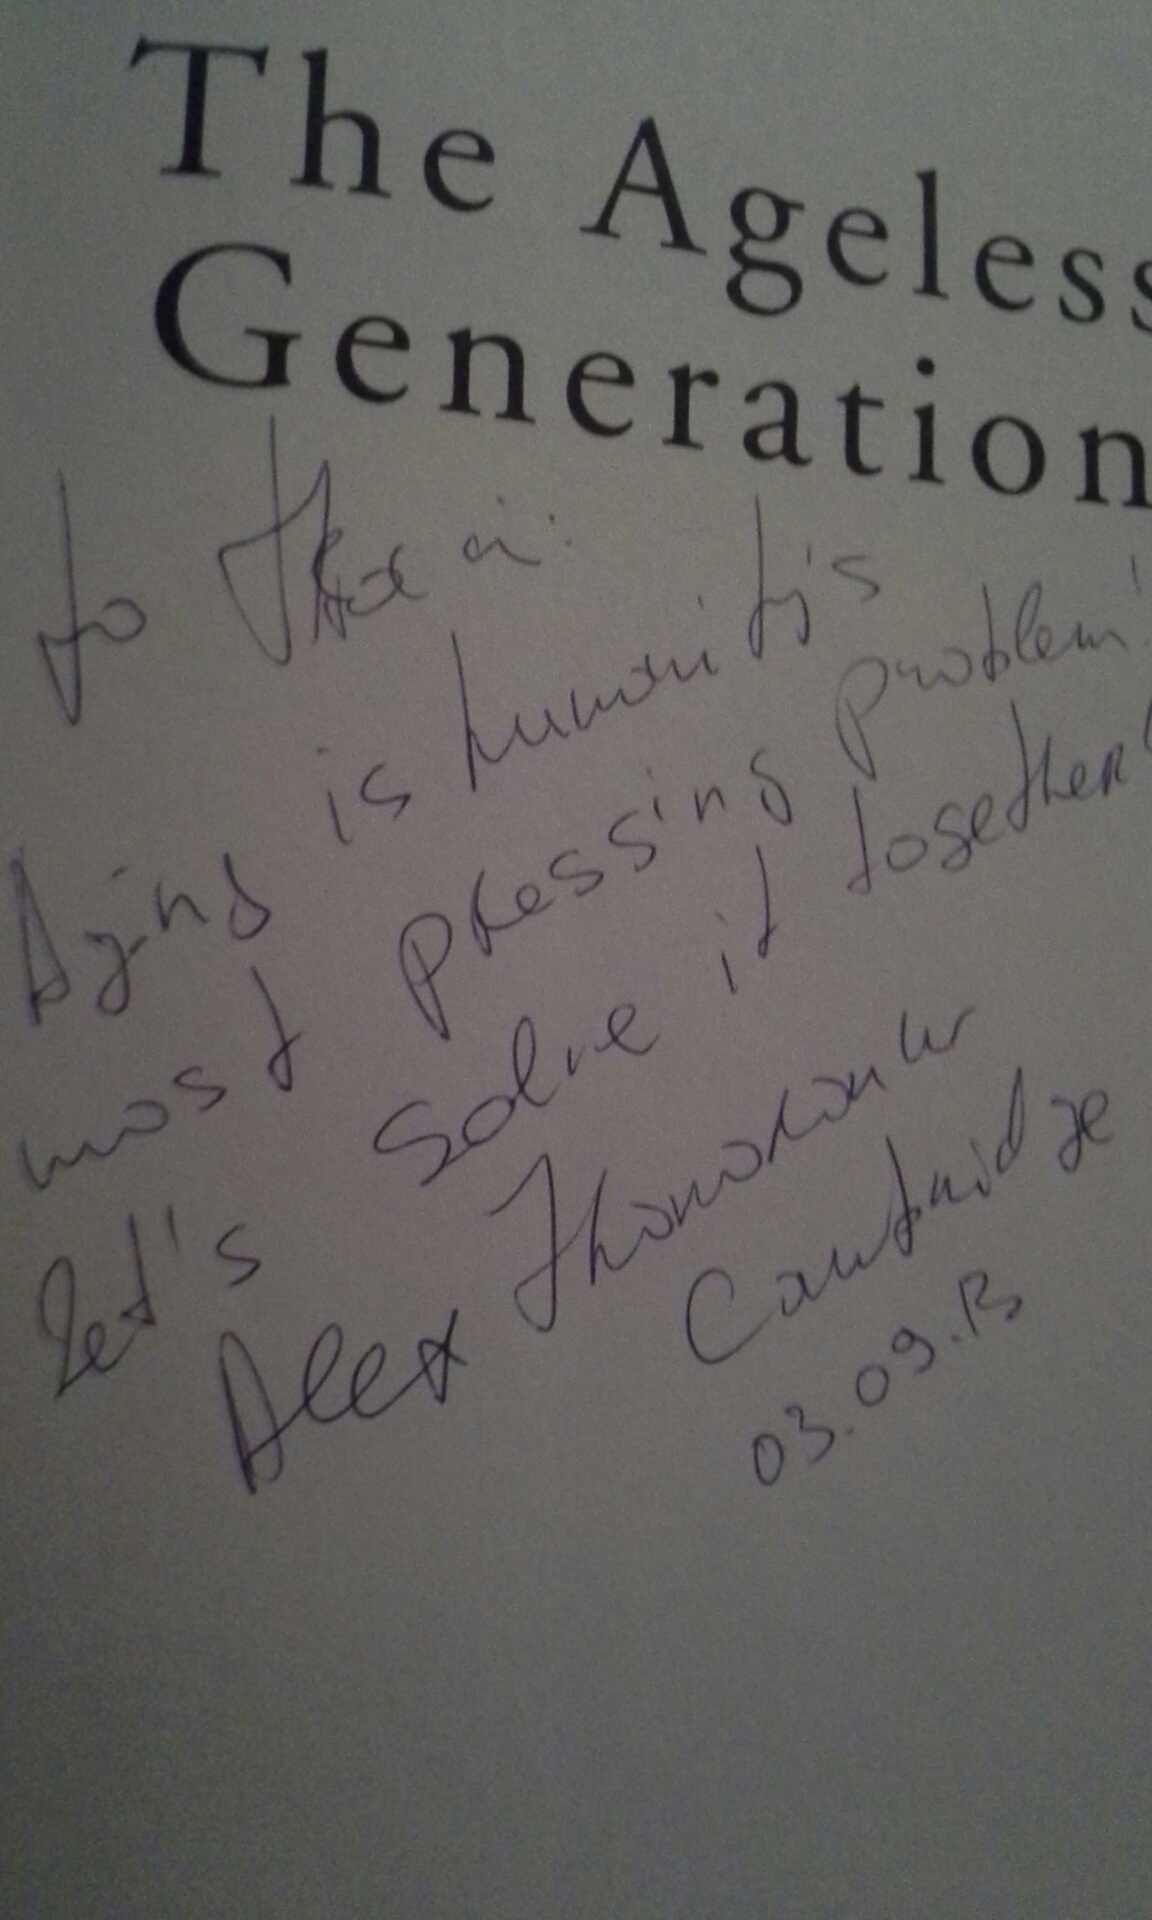 The Ageless
Generation
to
Aging is humanity's
most pressing problem!
Let's solve it together!
Alex Zhavoronkov
Cambridge
03.09.13